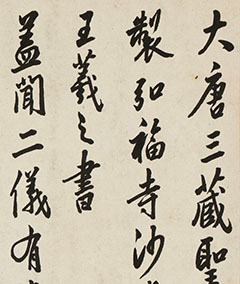 大唐三蔵聖
製弘福寺沙
王羲之書
蓋聞二儀有